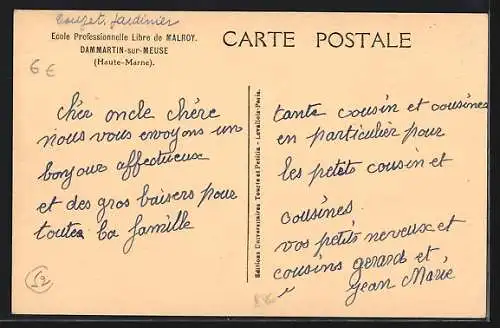 Ecole Professionnelle Libre de MALROY.
DAMMARTIN-sur-MEUSE
(Haute-Marne).
CARTE POSTALE
6 €
cher oncle chère
nous vous envoyons un
bonjour affectueux
et des gros baisers pour
toutes la famille
52
Editions Universitaires Tourte et Petitin - Levallois-Paris.
tante cousin et cousines
en particulier pour
les petits cousin et
cousines
vos petits neveux et
cousins gerard et
jean Marie